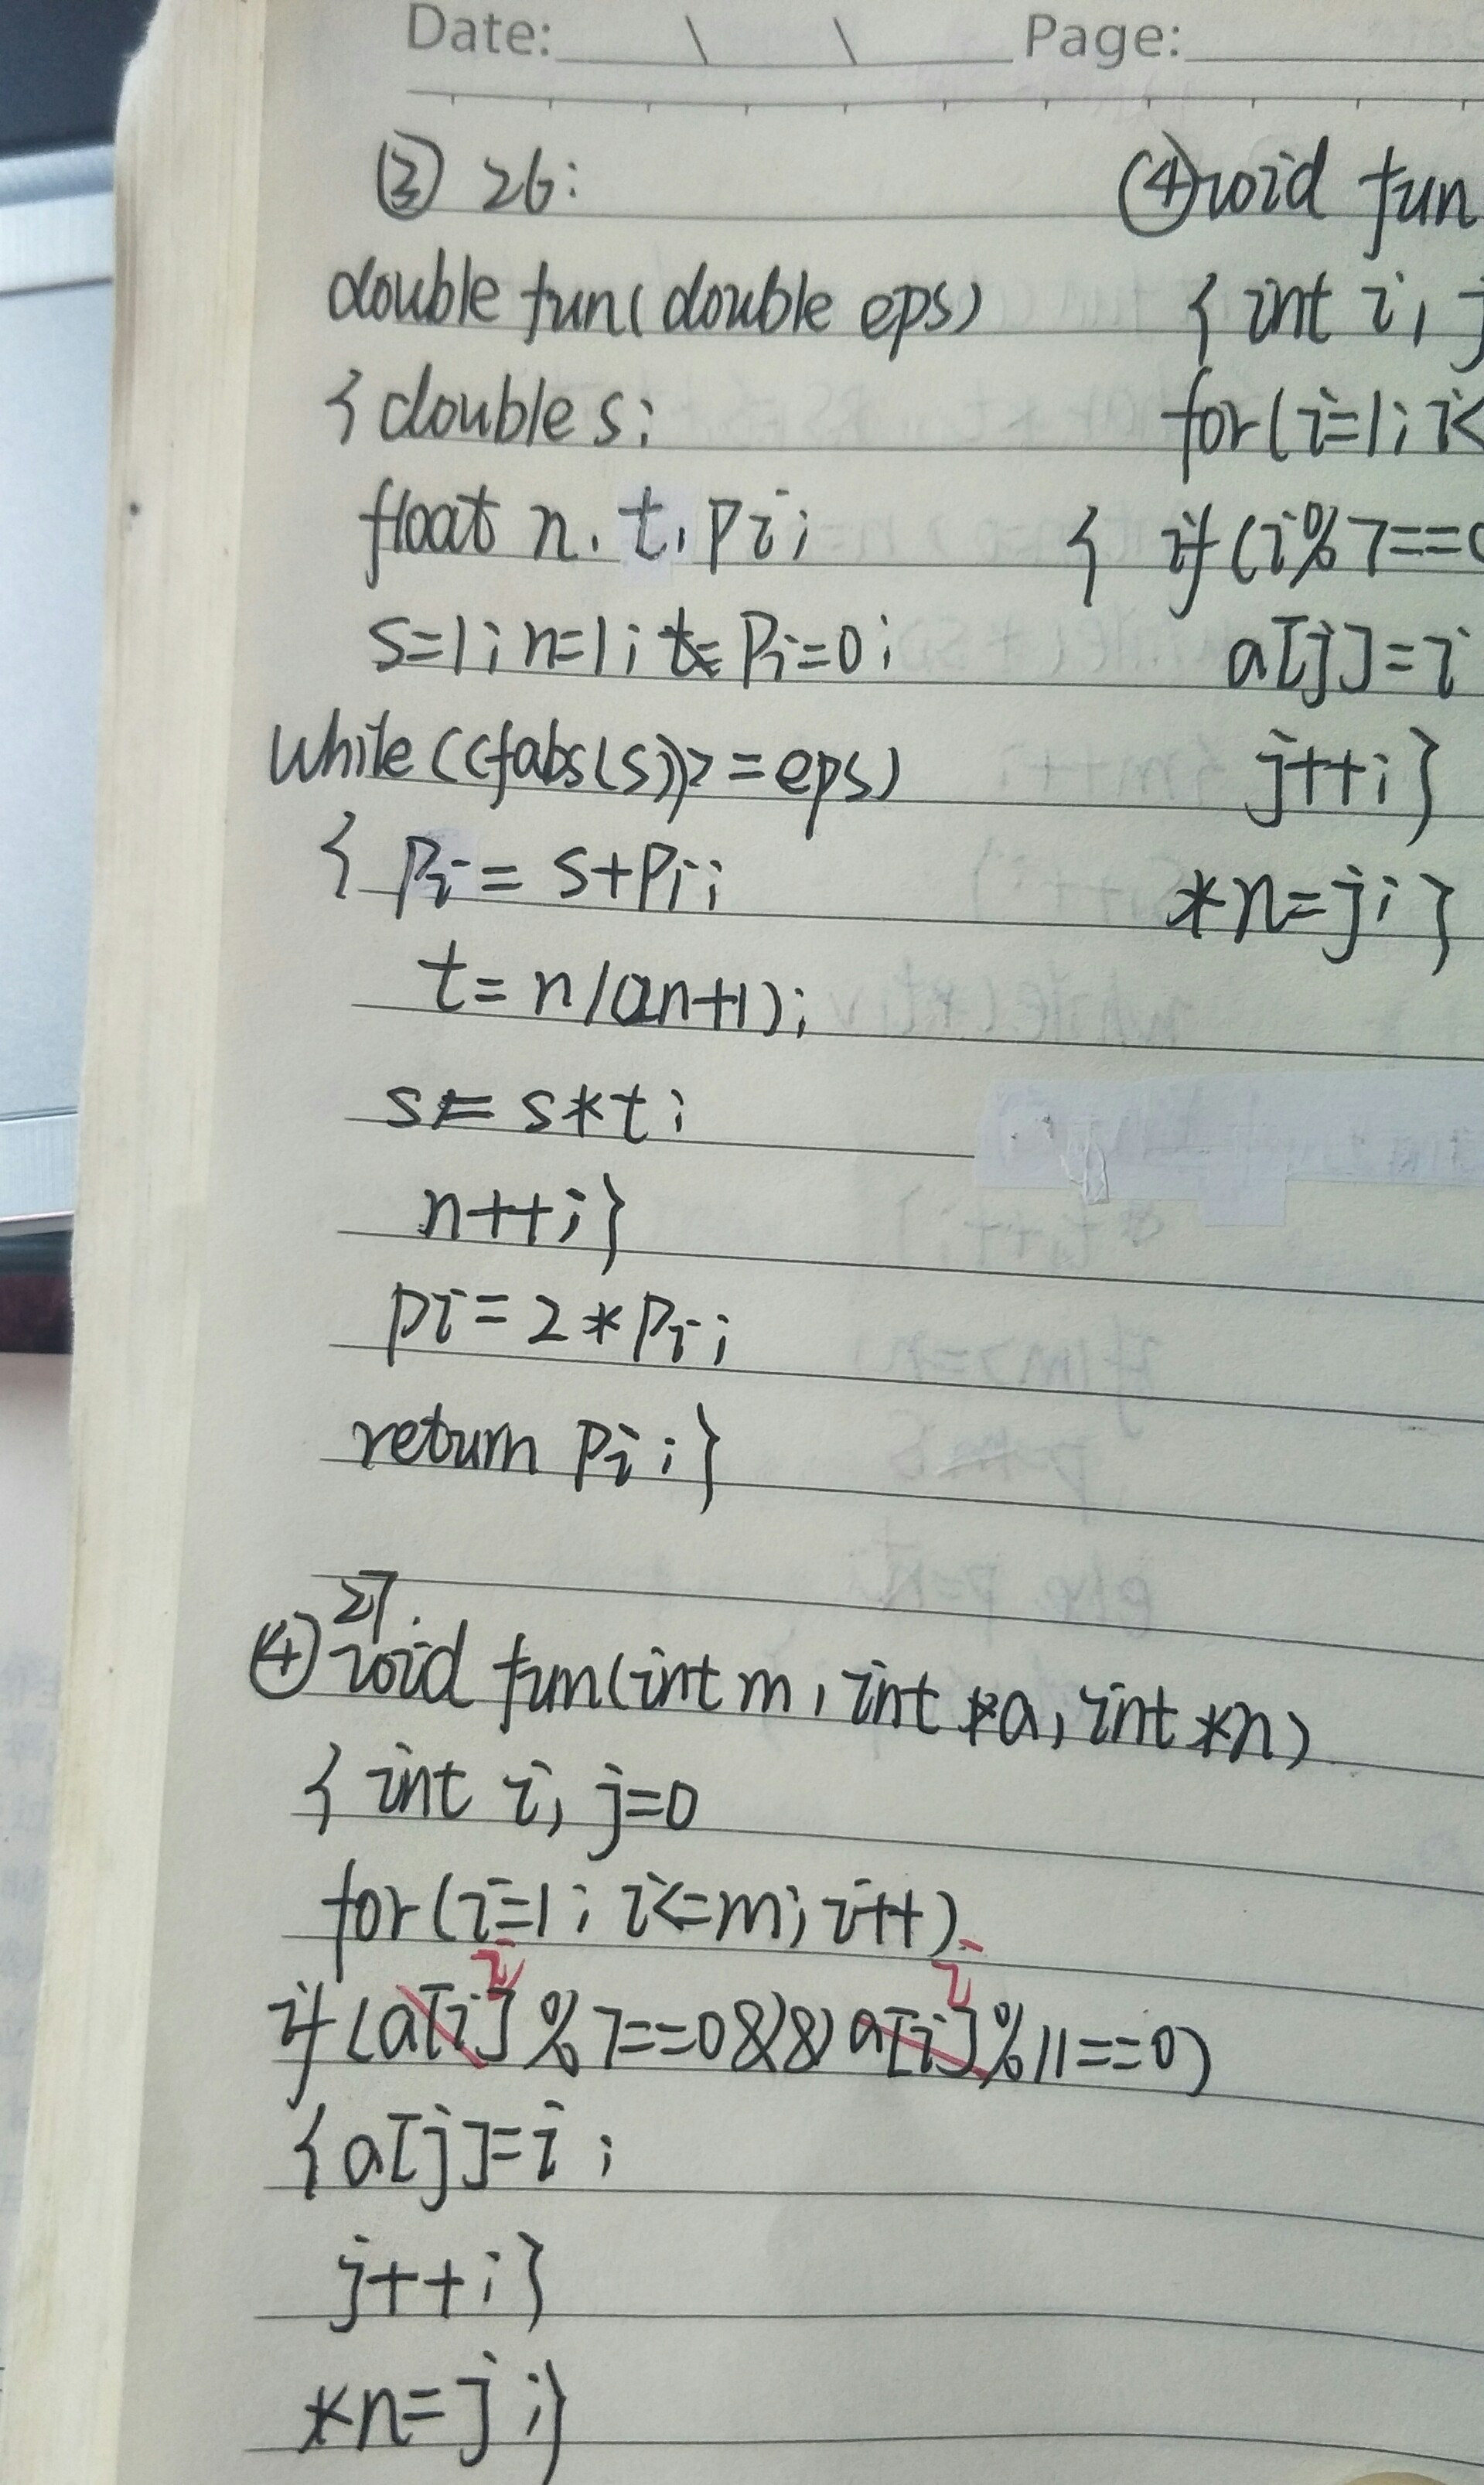 Date: \ \ Page:
③ 26:
double fun(double eps)
{ double s;
float n, t, pi;
s=1; n=1; t= pi=0;
while((fabs(s))>=eps)
{ pi= s+pi;
t= n/(2n+1);
s= s*t;
n++;}
pi=2*pi;
return pi;}
27.
④ void fun(int m, int *a, int *n)
{ int i, j=0
for(i=1; i<=m; i++)
i i
if(a[i]%7==0&&a[i]%11==0)
{a[j]=i;
j++;}
*n=j;}
④void fun
{ int i, j
for(i=1; i<
{ if(i%7==0
a[j]=i
j++;}
*n=j;}